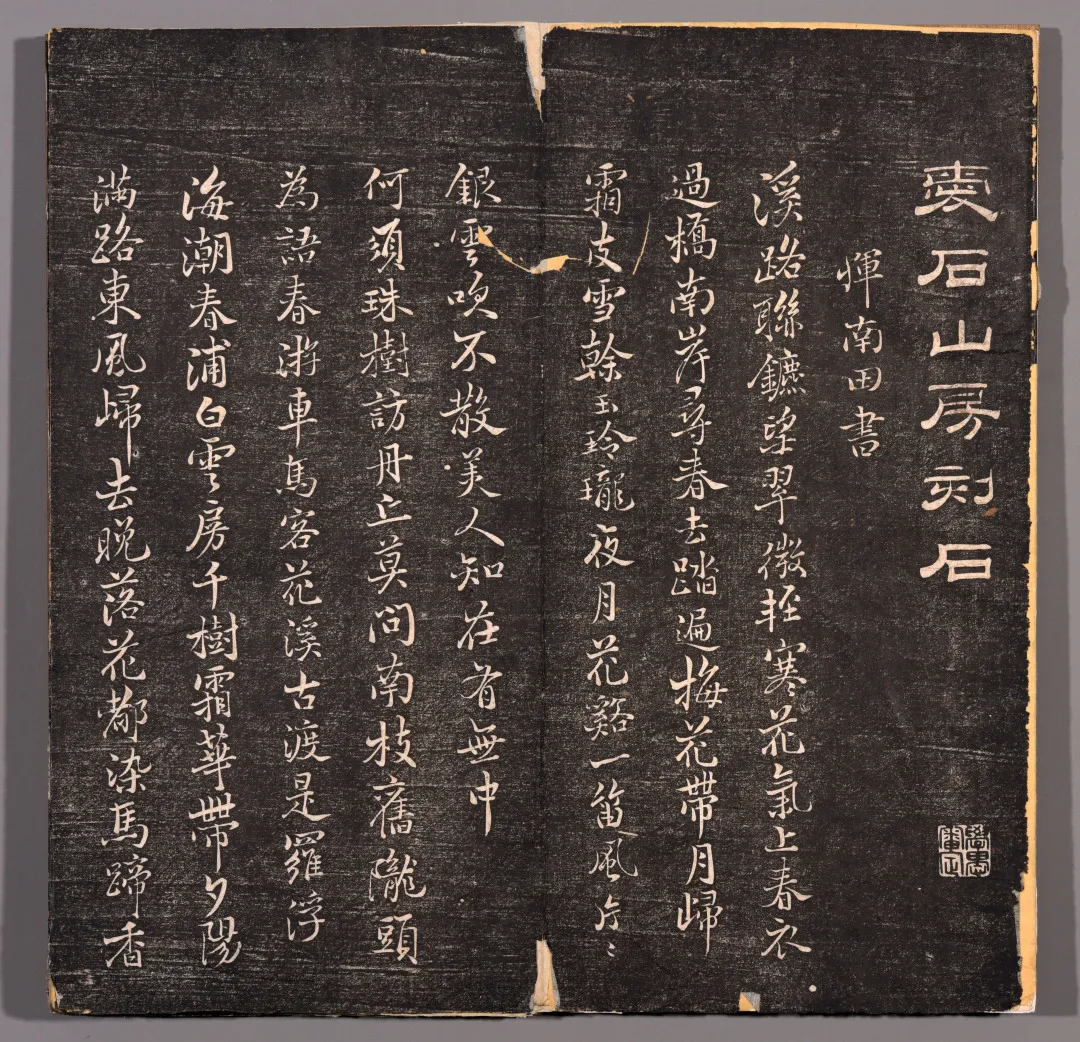 愛石山房刻石
惲南田書
溪路聯鑣望翠微輕寒花氣上春衣
過橋南岸尋春去踏遍梅花帶月歸
霜皮雪幹玉玲瓏夜月花谿一笛風片〻
銀雲吹不散美人知在有無中
何須珠樹訪丹丘莫問南枝舊隴頭
為語春游車馬客花溪古渡是羅浮
海潮春浦白雲房千樹霜華帶夕陽
滿路東風歸去晚落花都染馬蹄香